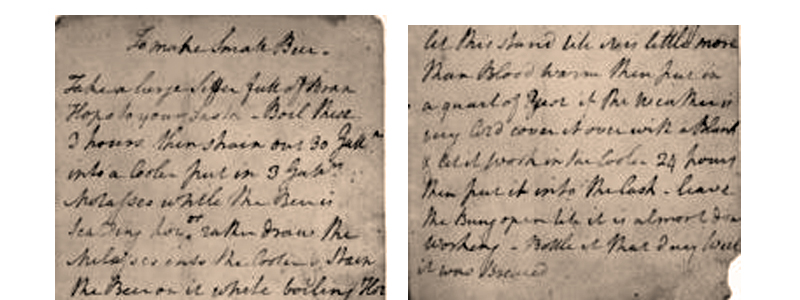 To make Small Beer.
Take a large Siffer full of Bran
Hops to your Taste - Boil these
3 hours. then strain out 30 Gall.n
into a Cooler put in 3 Gall.n
Molasses while the Beer is
Scalding hot or rather draw the
Molasses into the Cooler & Strain
the Beer on it while boiling Hot
let this stand till it is little more
than Blood warm then put in
a quart of Yest if the weather is
very Cold cover it over with a Blank
& let it work in the Cooler 24 hours
then put it into the Cask - leave
the Bung open till it is almost don
working - Bottle it that day Week
it was Brewed